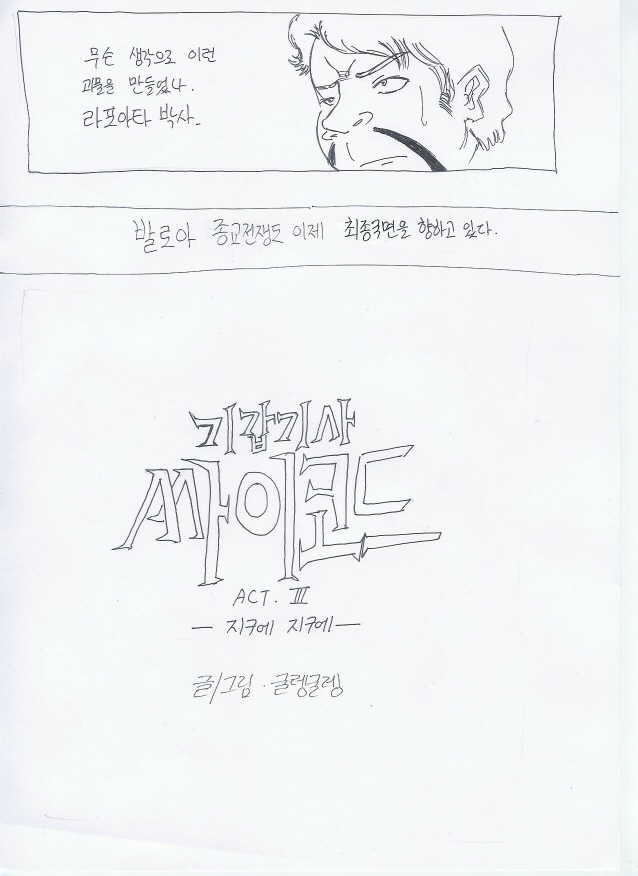 무슨 생각으로 이런
괴물을 만들었나.
라포아타 박사..
발로아 종교전쟁도 이제 최종국면을 향하고 있다.
기갑기사
싸이코드
ACT. III
— 지쿠에 지쿠에 —
글/그림 · 클렝클렝